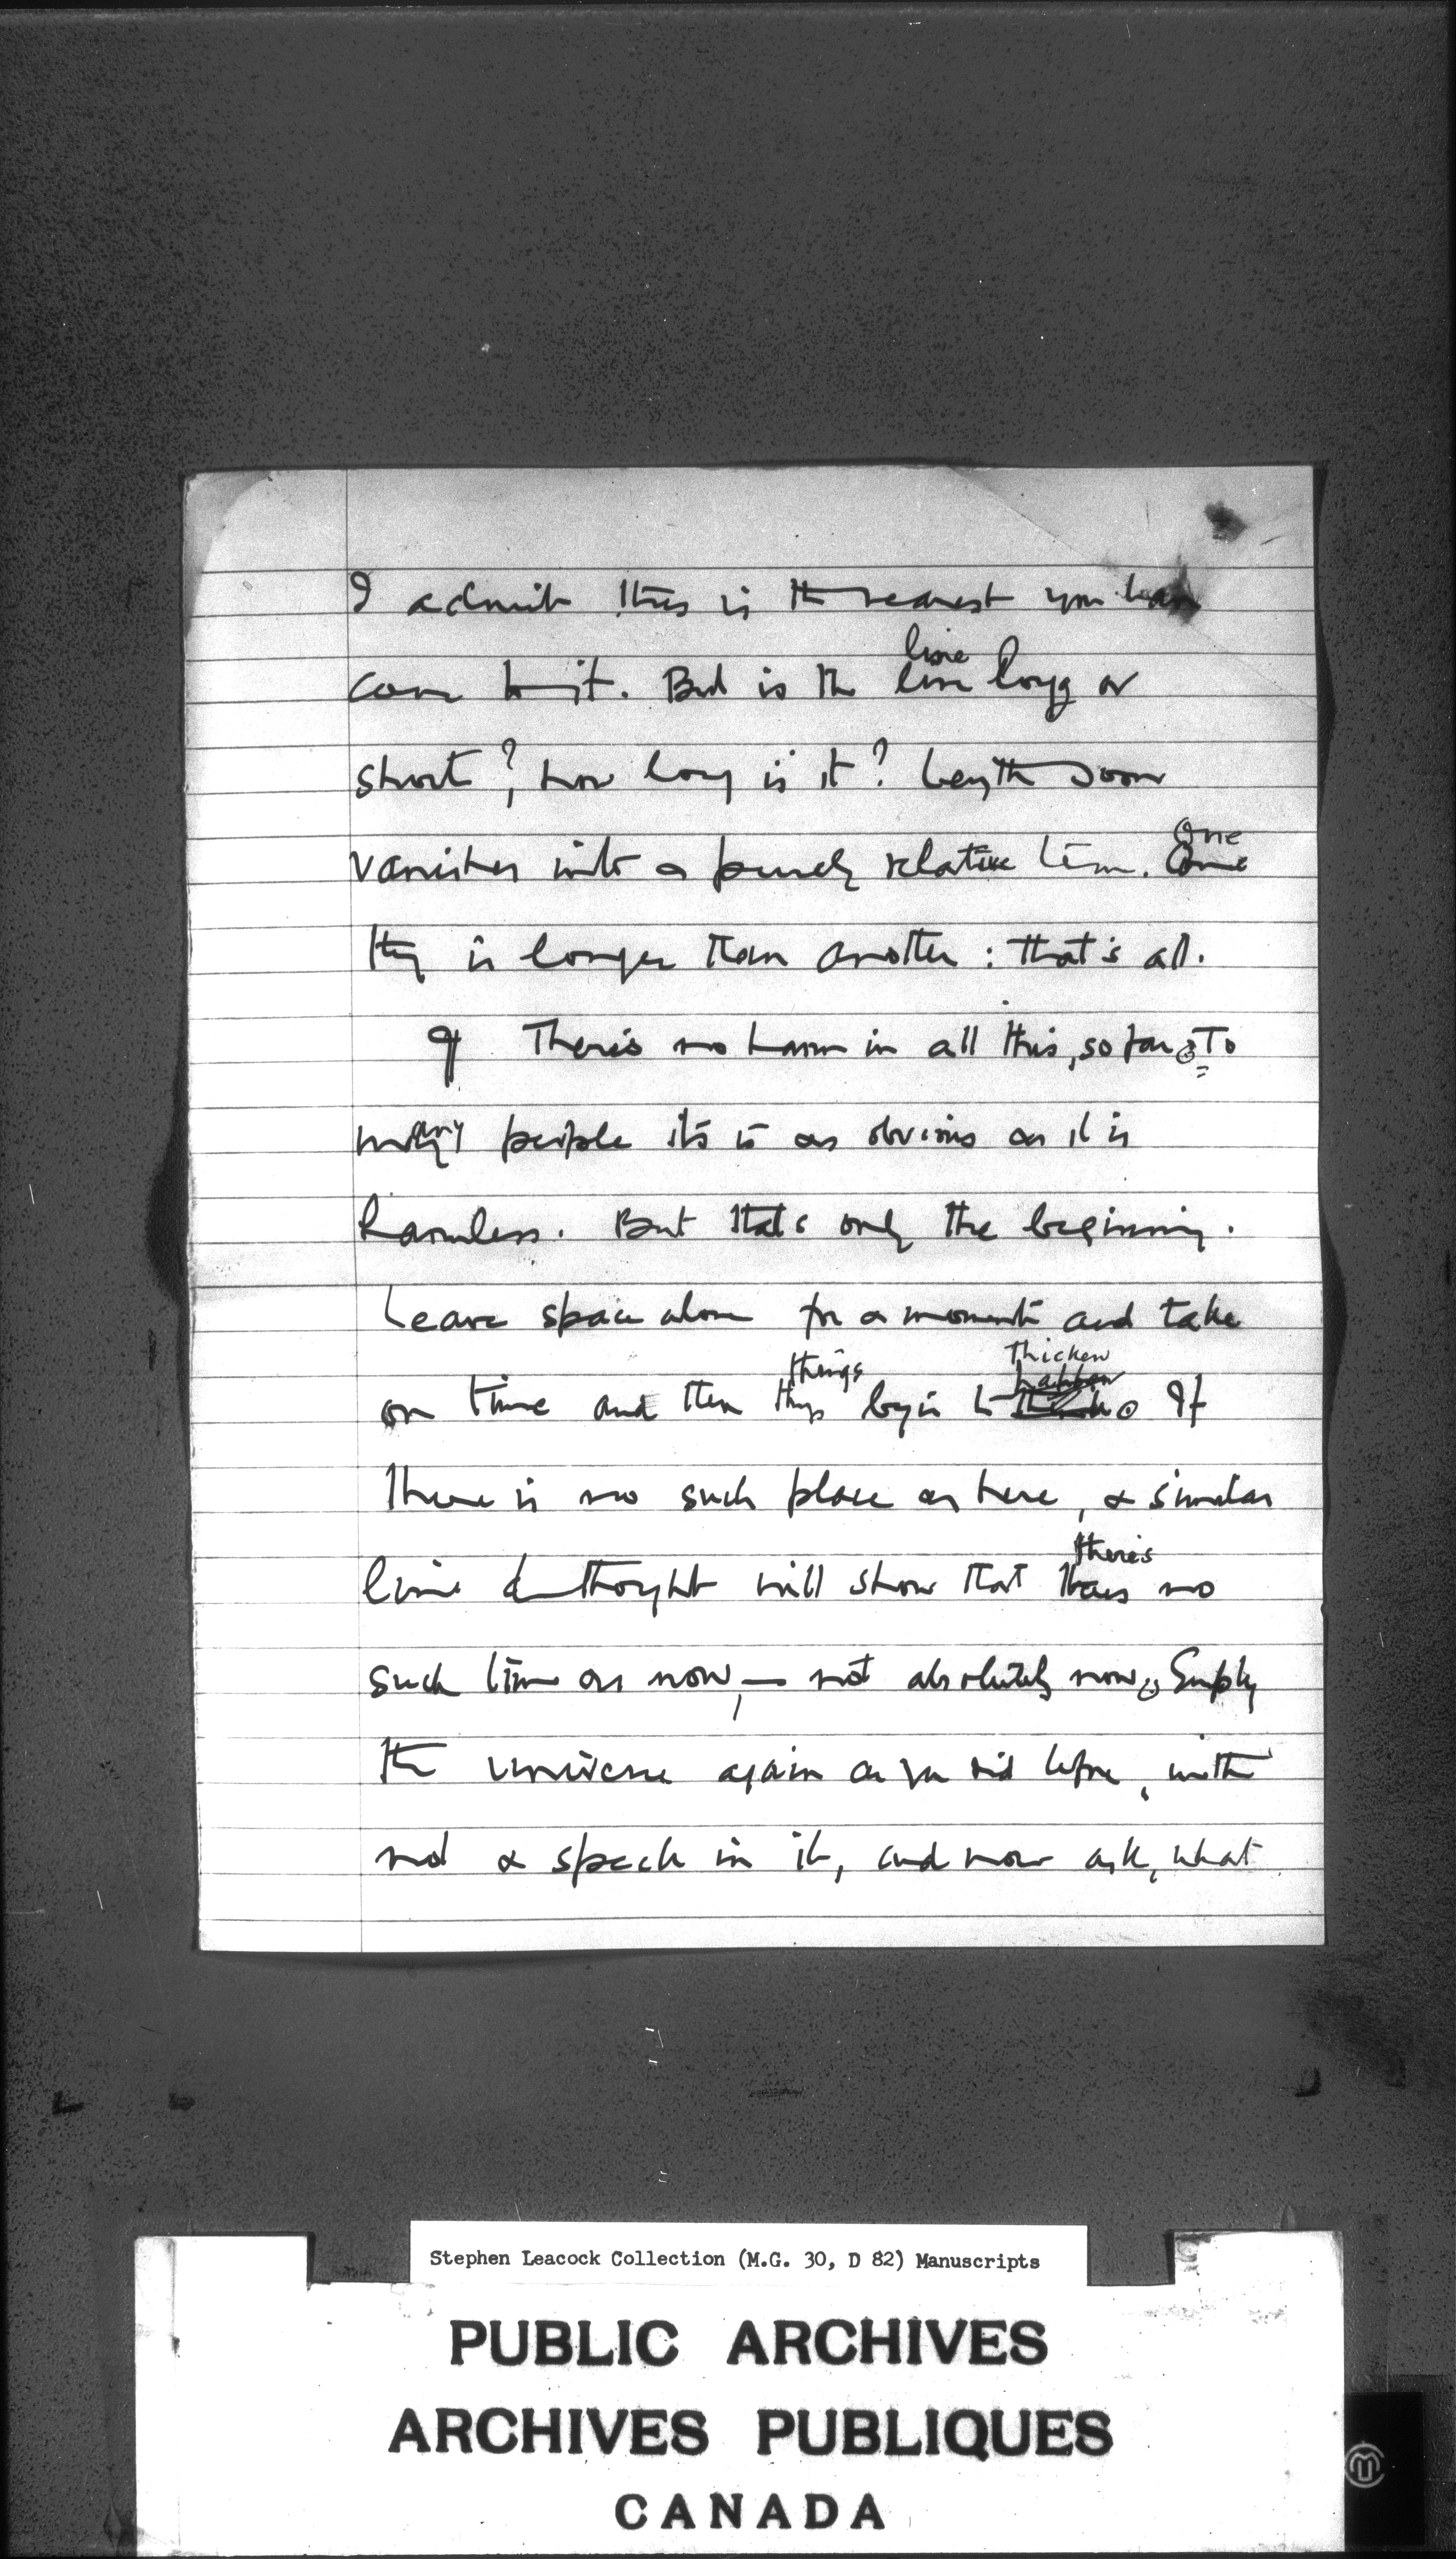 I admit this is the nearest you can
come to it. But is the line line long or
short?, how long is it? Length soon
vanishes into a purely relative term. One
thing is longer than another: that's all.
¶ There's no harm in all this, so far. To
many people it's is as obvious as it is
harmless. But that's only the beginning.
Leave space alone for a moment and take
things thicken
on time and then things begin to If
there is no such place as here, a similar
there's
line of thought will show that there's no
such time as now, — not absolutely now. Empty
the universe again as you did before, with
not a speck in it, and now ask, what
Stephen Leacock Collection (M.G. 30, D 82) Manuscripts
PUBLIC ARCHIVES
ARCHIVES PUBLIQUES
CANADA